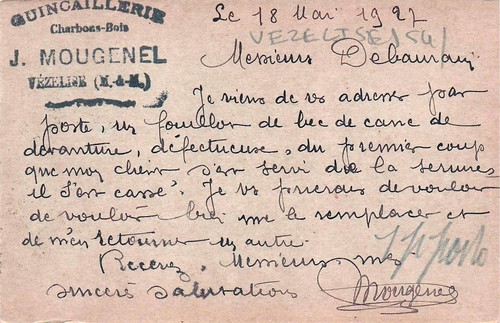 QUINCAILLERIE
Charbons-Bois
J. MOUGENEL
VÉZELISE (M.-&-M.)
Le 18 Mai 1927
VEZELISE 154
Messieurs Debaurain
Je viens de vs adresser par
poste, un fouillot de bec de cane de
devanture, défectueuse, du premier coup
que mon client s'est servi de la serrure,
il s'est cassé. Je vs prierais de vouloir
de vouloir bien me le remplacer et
de m'en retourner un autre.
Recevez, Messieurs, mes
sincères salutations
Mougenel